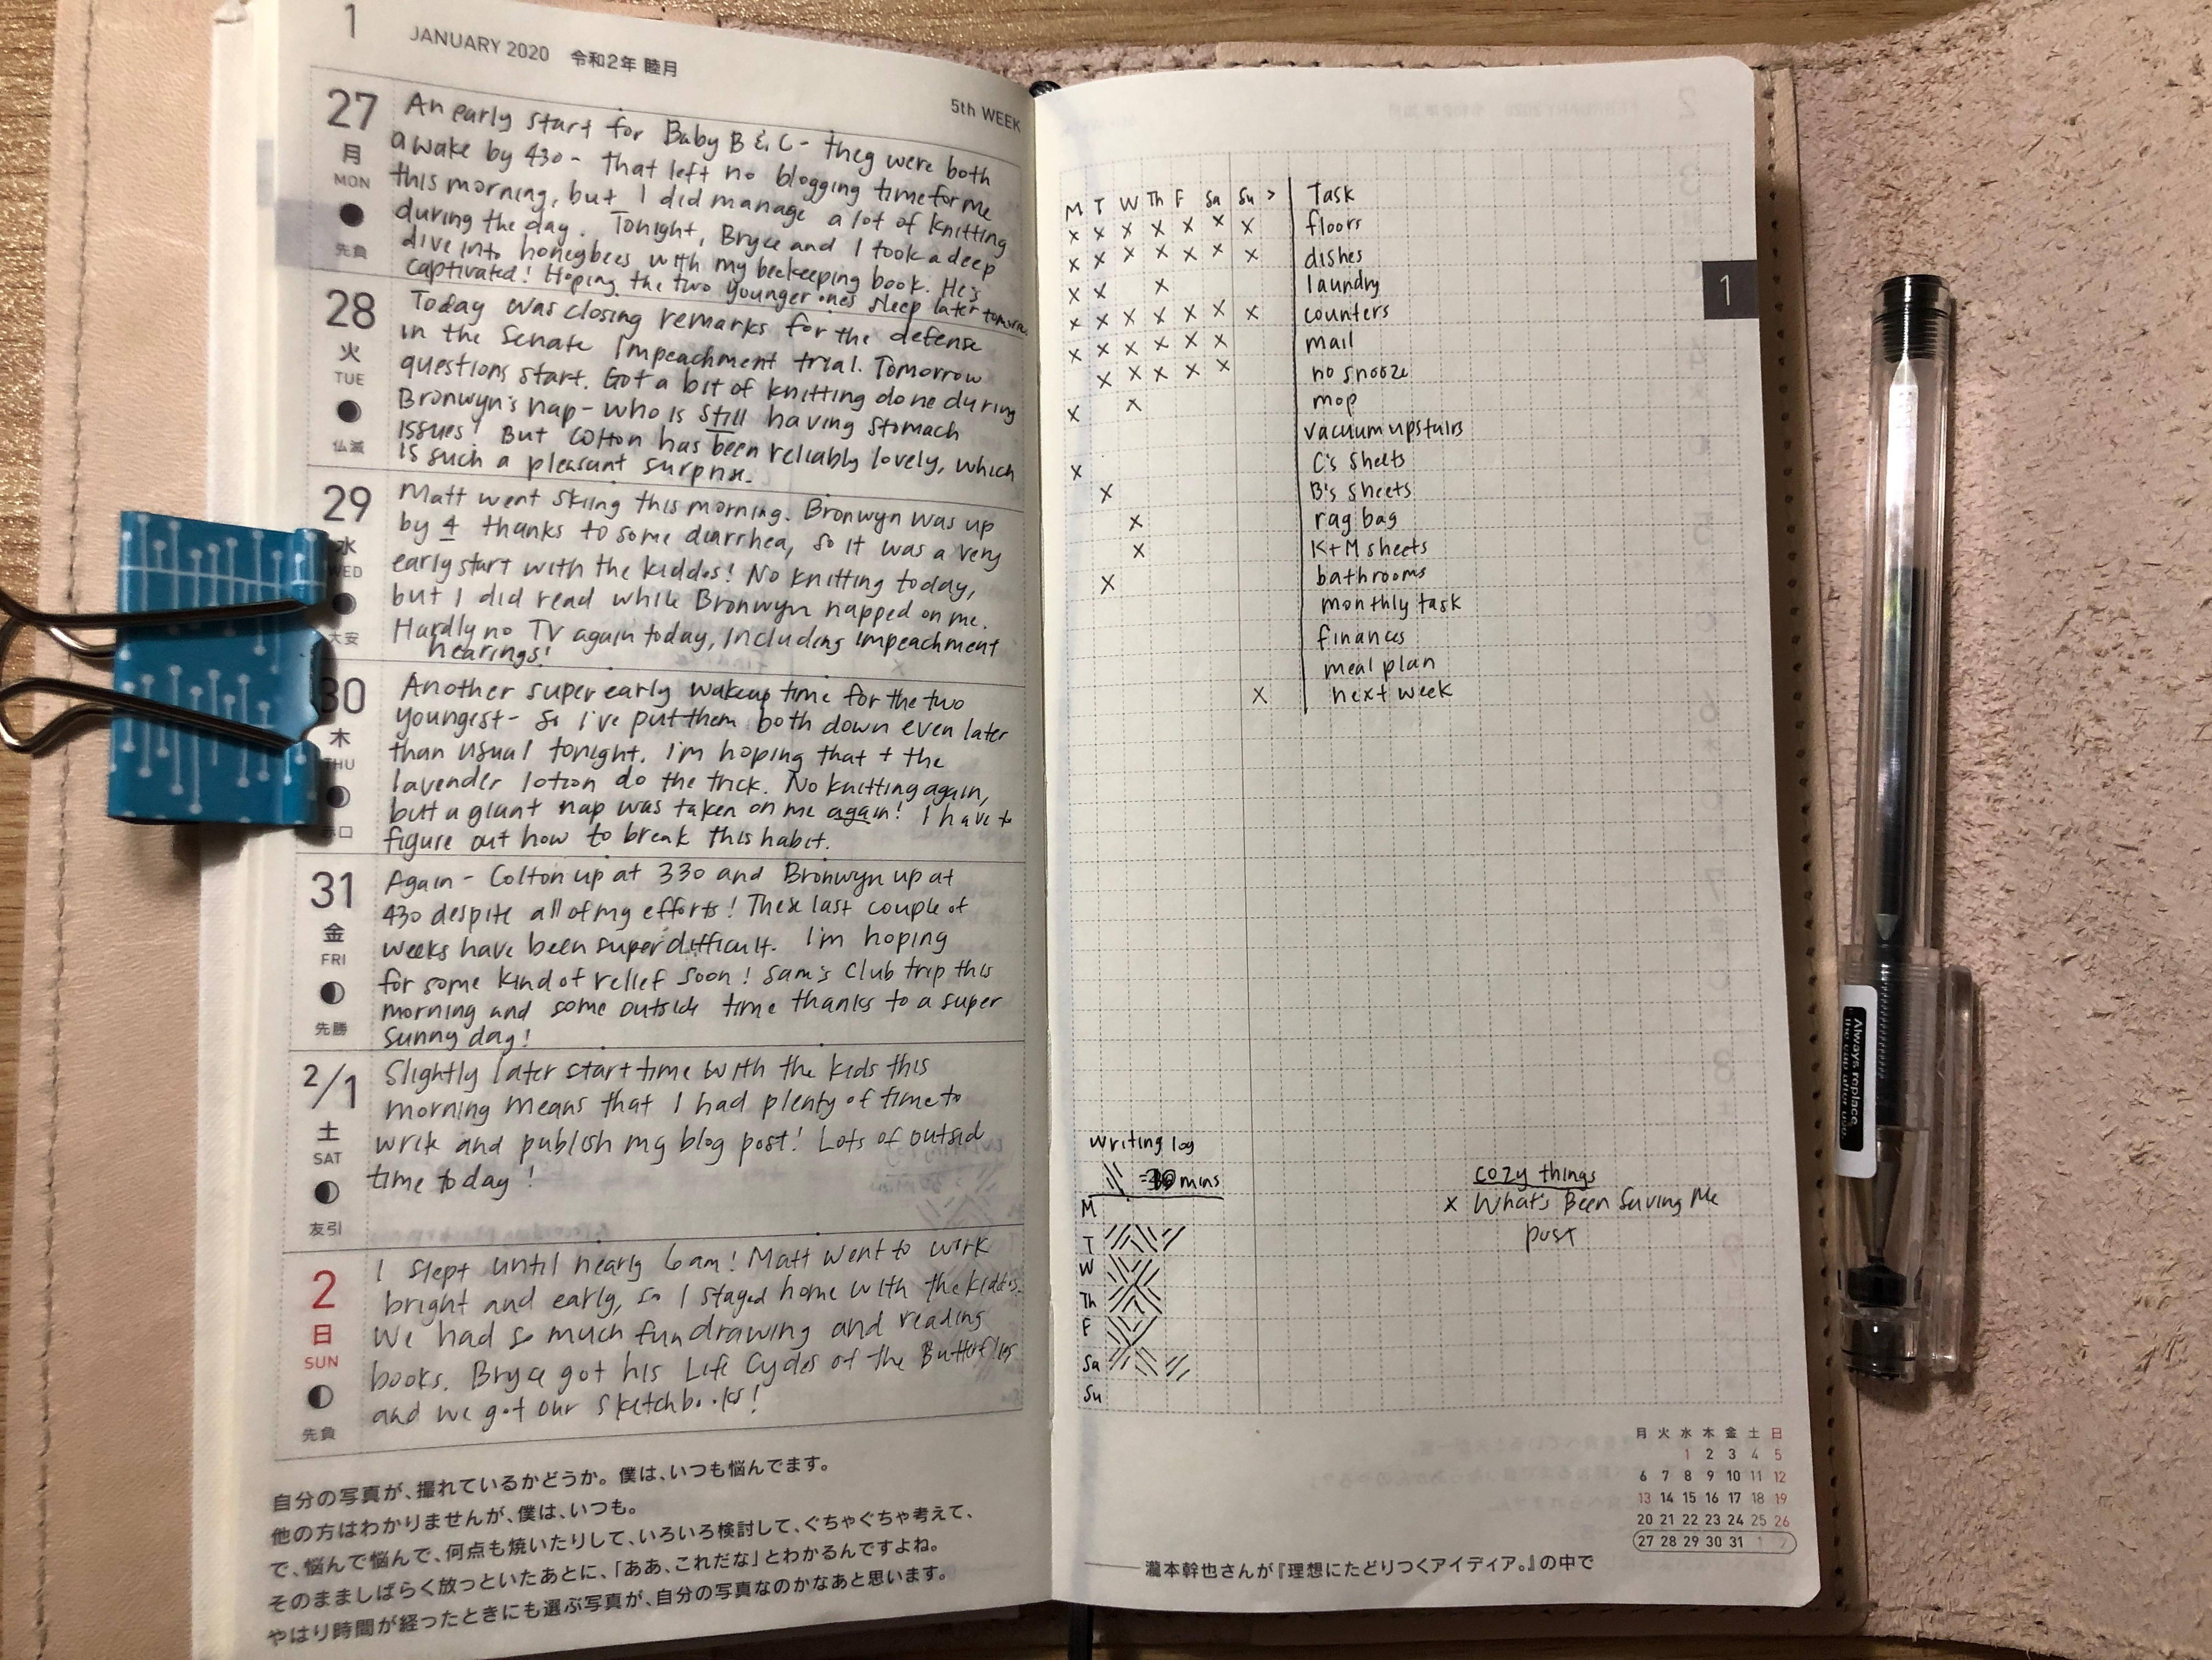 1 JANUARY 2020 令和2年 睦月
5th WEEK
27
月
MON
先負
An early start for Baby B & C - they were both
awake by 430 - that left no blogging time for me
this morning, but I did manage a lot of knitting
during the day. Tonight, Bryce and I took a deep
dive into honeybees with my beekeeping book. He's
captivated! Hoping the two younger ones sleep later tomorrow
28
火
TUE
仏滅
Today was closing remarks for the defense
in the Senate Impeachment trial. Tomorrow
questions start. Got a bit of knitting done during
Bronwyn's nap - who is still having stomach
issues! But Colton has been reliably lovely, which
is such a pleasant surprise.
29
水
WED
大安
Matt went skiing this morning. Bronwyn was up
by 4 thanks to some diarrhea, so it was a very
early start with the kiddos! No knitting today,
but I did read while Bronwyn napped on me.
Hardly no TV again today, including impeachment
hearings!
30
木
THU
赤口
Another super early wakeup time for the two
youngest - so I've put them both down even later
than usual tonight. I'm hoping that + the
lavender lotion do the trick. No knitting again,
but a giant nap was taken on me again! I have to
figure out how to break this habit.
31
金
FRI
先勝
Again - Colton up at 330 and Bronwyn up at
430 despite all of my efforts! These last couple of
weeks have been super difficult. I'm hoping
for some kind of relief soon! Sam's Club trip this
morning and some outside time thanks to a super
sunny day!
2/1
土
SAT
友引
Slightly later start time with the kids this
morning means that I had plenty of time to
write and publish my blog post! Lots of outside
time today!
2
日
SUN
先負
I slept until nearly 6am! Matt went to work
bright and early, so I stayed home with the kiddos.
We had so much fun drawing and reading
books. Bryce got his Life Cycles of the Butterflies
and we got our sketchbooks!
自分の写真が、撮れているかどうか。僕は、いつも悩んでます。
他の方はわかりませんが、僕は、いつも。
で、悩んで悩んで、何点も焼いたりして、いろいろ検討して、ぐちゃぐちゃ考えて、
そのまましばらく放っといたあとに、「ああ、これだな」とわかるんですよね。
やはり時間が経ったときにも選ぶ写真が、自分の写真なのかなあと思います。
M T W Th F Sa Su > Task
x x x x x x x floors
x x x x x x x dishes
x x x laundry
x x x x x x x counters
x x x x x x mail
x x x x x no snooze
x x mop
vacuum upstairs
x C's sheets
x B's sheets
x rag bag
x K+M sheets
x bathrooms
monthly task
finances
meal plan
x next week
1
writing log
mins
M
T
W
Th
F
Sa
Su
cozy things
x What's Been Saving Me
post
月 火 水 木 金 土 日
1 2 3 4 5
6 7 8 9 10 11 12
13 14 15 16 17 18 19
20 21 22 23 24 25 26
27 28 29 30 31 1 2
——瀧本幹也さんが『理想にたどりつくアイディア。』の中で
Always replace
the cap after use.